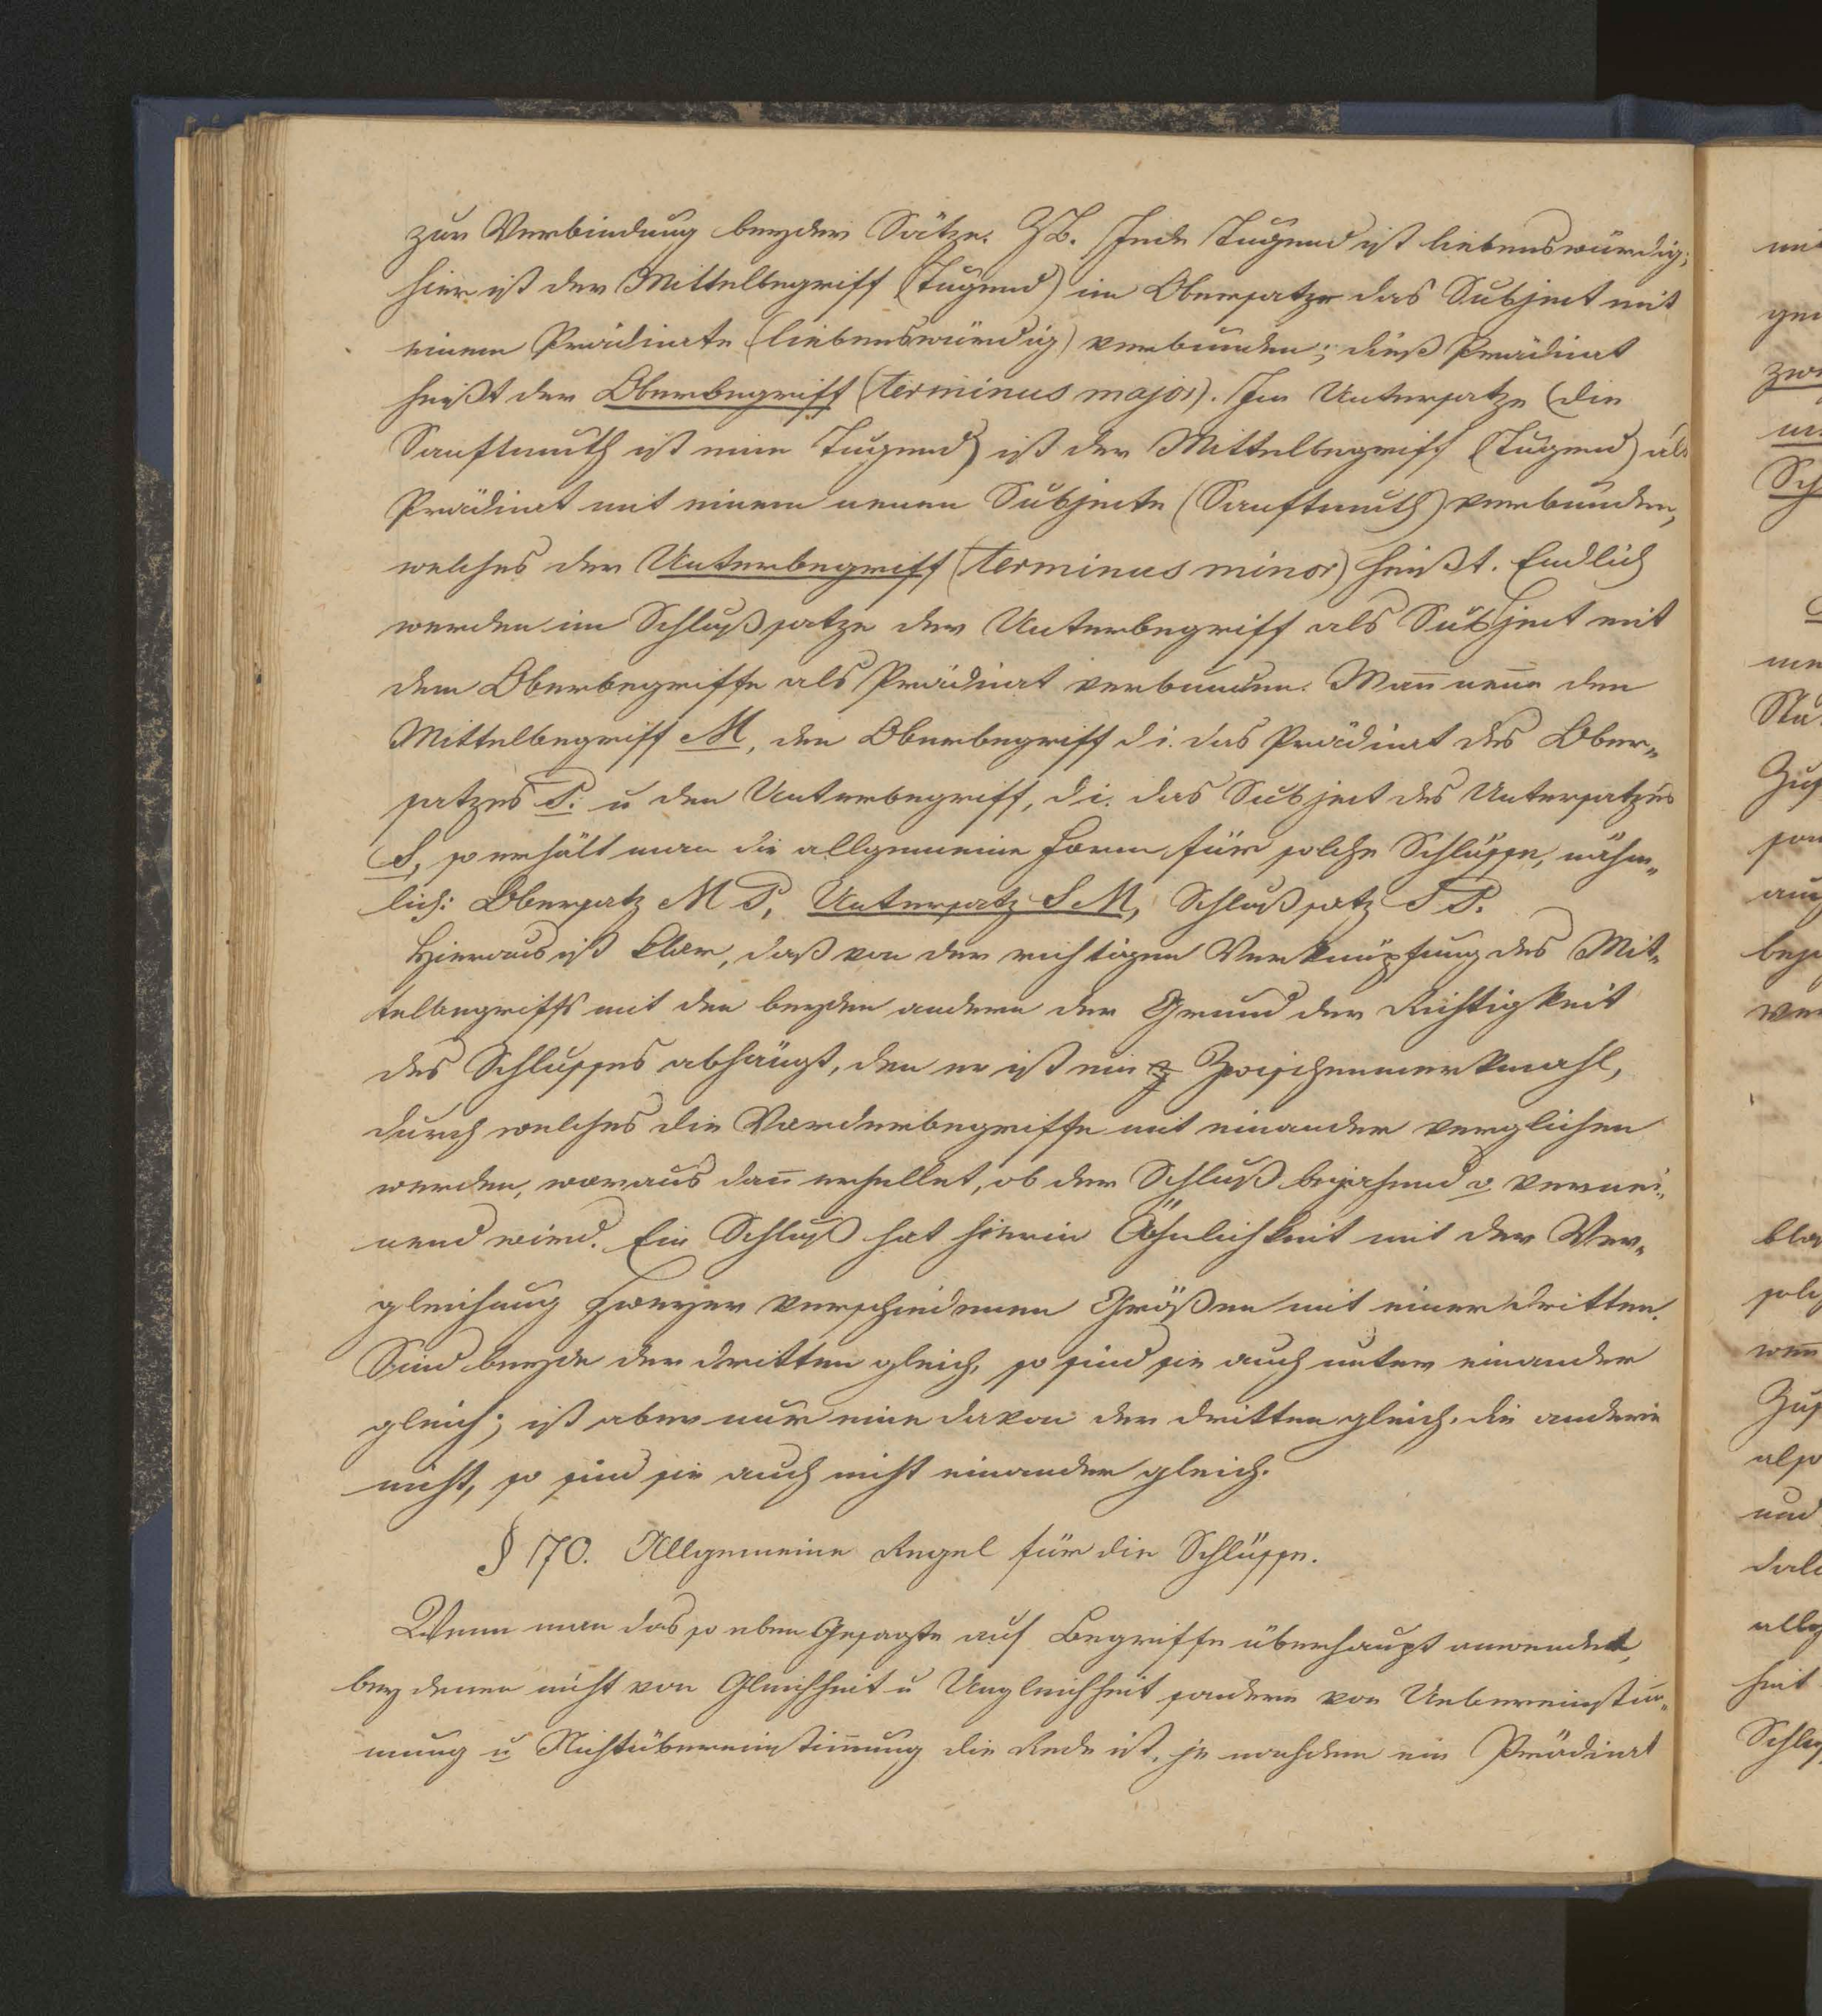 zur Verbindung beyder Sätze. Z.B. Jede Tugend ist liebenswürdig;
hier ist der Mittelbegriff (Tugend) im Obersatze das Subject mit
einem Prädicate (liebenswürdig) verbunden; dieß Prädicat
heißt der Oberbegriff (terminus major). Im Untersatze (die
Sanftmuth ist eine Tugend) ist der Mittelbegriff (Tugend) als
Prädicat mit einem neuen Subjecte (Sanftmuth) verbunden,
welches der Unterbegriff (terminus minor) heißt. Endlich
werden im Schlußsatze der Unterbegriff als Subject mit
dem Oberbegriffe als Prädicat verbunden. Man̄ nen̄e den
Mittelbegriff M, den Oberbegriff d.i. das Prädicat des Ober-
satzes P. u den Unterbegriff, d.i. das Subject des Untersatzes
S, so erhält man die allgemeine Form für solche Schlüsse, nähm-
lich: Obersatz M P, Untersatz S M, Schlußsatz S P.
Hieraus ist klar, daß von der richtigen Verknüpfung des Mit-
telbegriffs mit den beyden andern der Grund der Richtigkeit
des Schlusses abhängt, den er ist ein Zwischenmerkmahl,
durch welches die Vorderbegriffe mit einander verglichen
werden, woraus dan̄ erhellet, ob der Schluß bejahend o vernei-
nend wird. Ein Schluß hat hierin Ähnlichkeit mit der Ver-
gleichung zweyer verschiedenen Größen mit einer dritten.
Sind beyde der dritten gleich, so sind sie auch unter einander
gleich; ist aber nur eine davon der dritten gleich, die andere
nicht, so sind sie auch nicht einander gleich.
§ 170. Allgemeine Regel für die Schlüsse.
Wenn man das so eben Gesagte auf Begriffe überhaupt anwendet,
bey denen nicht von Gleichheit u Ungleichheit sondern von Uebereinstim-
mung u Nichtübereinstim̄ung die Rede ist, je nachdem ein Prädicat